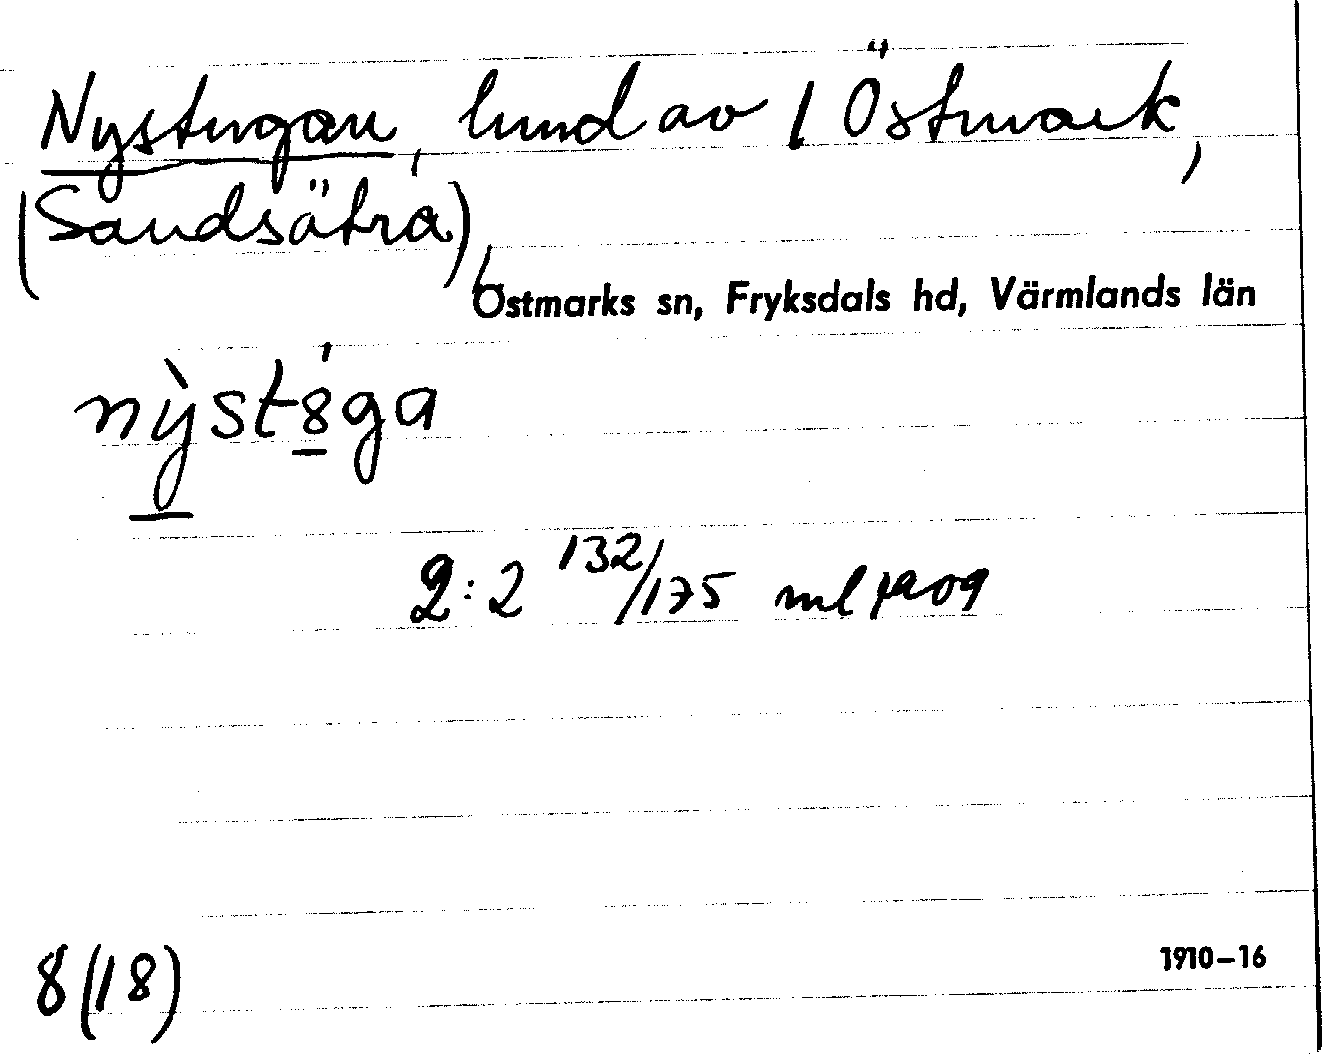 Nystugan, lund av 1 Östmark,
(Sandsätra),
Östmarks sn, Fryksdals hd, Värmlands län
nỳst8́ga
2:2 132/175 ml
1910–16
8(18)